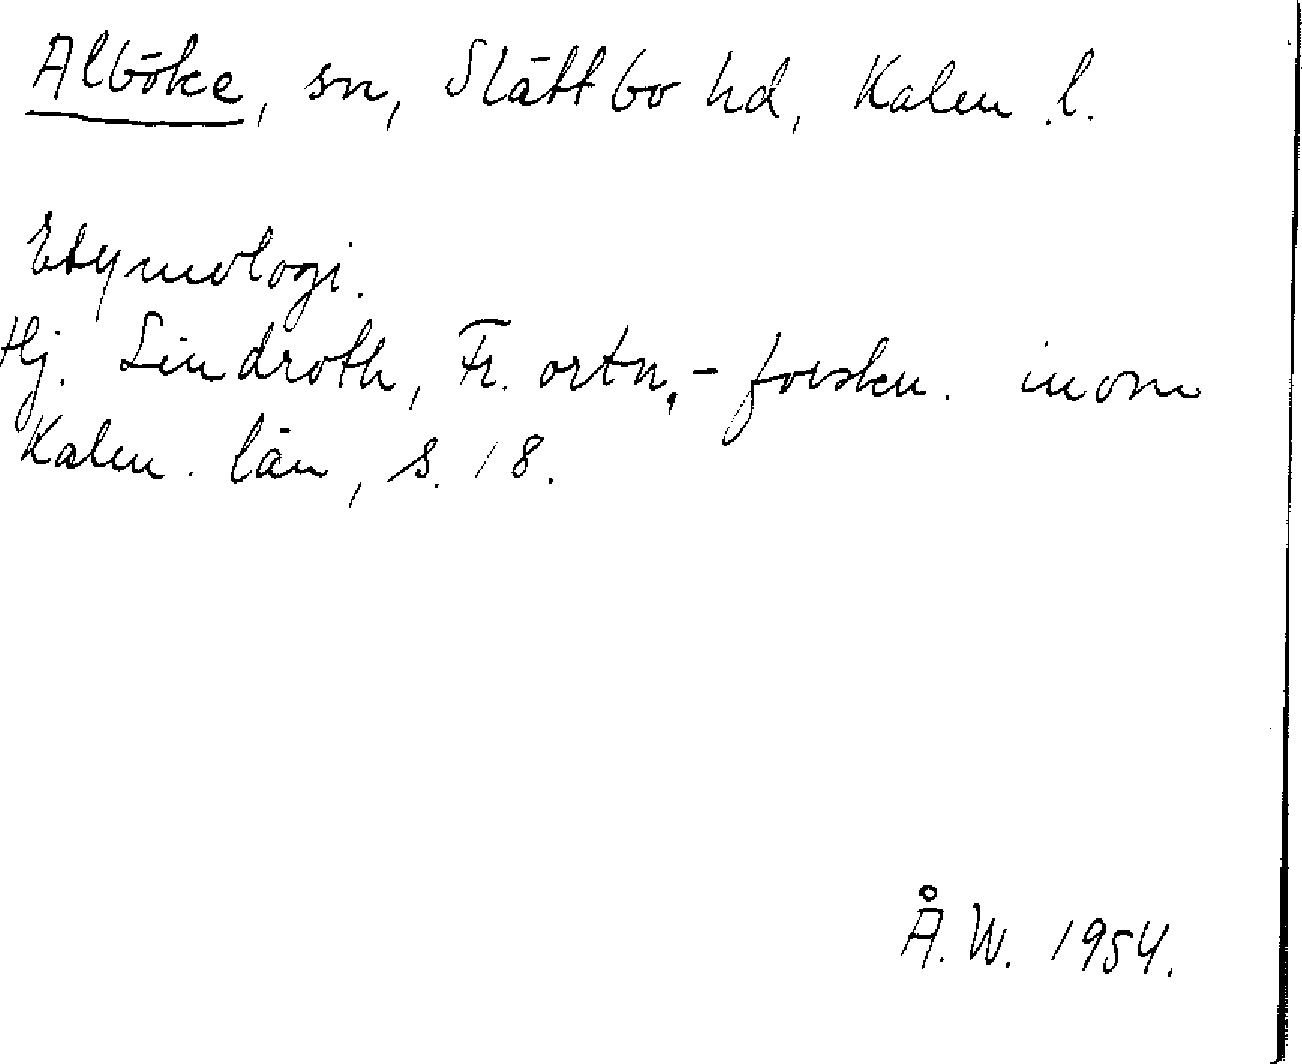 Alböke, sn, Slättbo hd, Kalm. l.
Etymologi.
Hj. Lindroth, Fr. ortn.-forskn. inom
Kalm. län, s. 18.
Å. W. 1954.